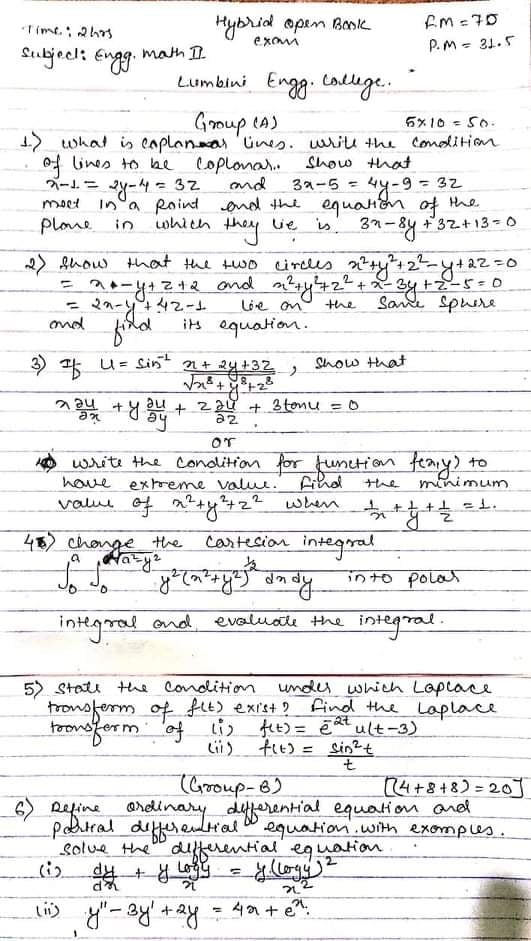 Time: 2hrs
Hybrid open Book exam
F.M = 70
Subject: Engg. math II
P.M = 31.5
Lumbini Engg. College.
Group (A)
5x10 = 50.
1) what is coplanar lines. write the condition
of lines to be coplonar. Show that
x-1 = 2y-4 = 3z and 3x-5 = 4y-9 = 3z
meet in a point and the equation of the
plane in which they lie is 3x-8y+3z+13=0
2) Show that the two circles x²+y²+z²-y+2z=0
= x-y+z+2 and x²+y²+z²+x-3y+z-5=0
= 2x-y+4z-1 lie on the same sphere
and find its equation.
3) If u = Sin⁻¹ (x+2y+3z)/√(x⁸+y⁸+z⁸), Show that
x ∂u/∂x + y ∂u/∂y + z ∂u/∂z + 3tanu = 0
or
write the condition for function f(x,y) to
have extreme value. Find the minimum
value of x²+y²+z² when 1/x + 1/y + 1/z = 1.
4) change the Cartesian integral
∫₀ᵃ ∫₀^√(a²-y²) y²(x²+y²)^½ dxdy into polar
integral and evaluate the integral.
5) State the condition under which Laplace
transform of f(t) exist? Find the Laplace
transform of (i) f(t) = e⁻²ᵗ u(t-3)
(ii) f(t) = sin²t/t
(Group-B) [(4+8+8)=20]
6) Define ordinary differential equation and
partial differential equation with examples.
Solve the differential equation
(i) dy/dx + y logy/x = y(logy)²/x²
(ii) y"-3y'+2y = 4x+eˣ.